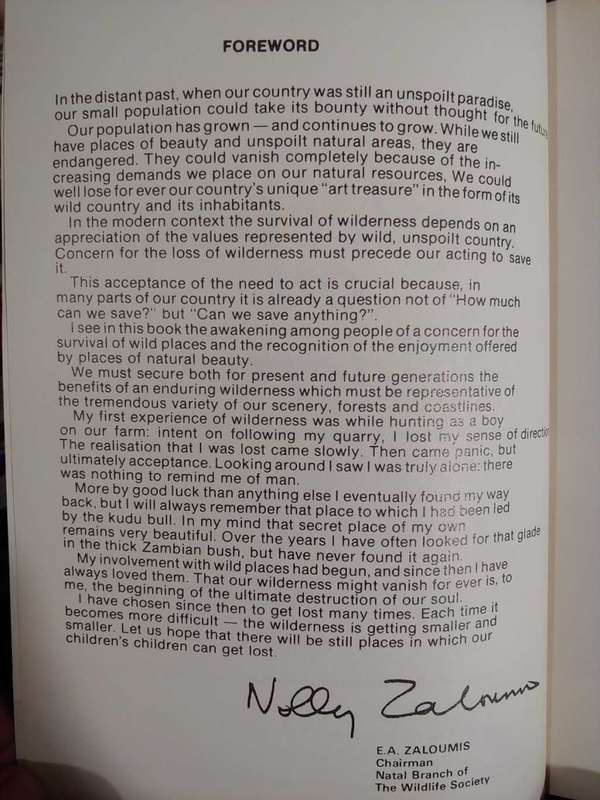 FOREWORD
In the distant past, when our country was still an unspoilt paradise,
our small population could take its bounty without thought for the future.
Our population has grown — and continues to grow. While we still
have places of beauty and unspoilt natural areas, they are
endangered. They could vanish completely because of the in-
creasing demands we place on our natural resources, We could
well lose for ever our country's unique "art treasure" in the form of its
wild country and its inhabitants.
In the modern context the survival of wilderness depends on an
appreciation of the values represented by wild, unspoilt country.
Concern for the loss of wilderness must precede our acting to save
it.
This acceptance of the need to act is crucial because, in
many parts of our country it is already a question not of "How much
can we save?" but "Can we save anything?".
I see in this book the awakening among people of a concern for the
survival of wild places and the recognition of the enjoyment offered
by places of natural beauty.
We must secure both for present and future generations the
benefits of an enduring wilderness which must be representative of
the tremendous variety of our scenery, forests and coastlines.
My first experience of wilderness was while hunting as a boy
on our farm: intent on following my quarry, I lost my sense of direction
The realisation that I was lost came slowly. Then came panic, but
ultimately acceptance. Looking around I saw I was truly alone: there
was nothing to remind me of man.
More by good luck than anything else I eventually found my way
back, but I will always remember that place to which I had been led
by the kudu bull. In my mind that secret place of my own
remains very beautiful. Over the years I have often looked for that glade
in the thick Zambian bush, but have never found it again.
My involvement with wild places had begun, and since then I have
always loved them. That our wilderness might vanish for ever is, to
me, the beginning of the ultimate destruction of our soul.
I have chosen since then to get lost many times. Each time it
becomes more difficult — the wilderness is getting smaller and
smaller. Let us hope that there will be still places in which our
children's children can get lost.
Nolly Zaloumis
E.A. ZALOUMIS
Chairman
Natal Branch of
The Wildlife Society